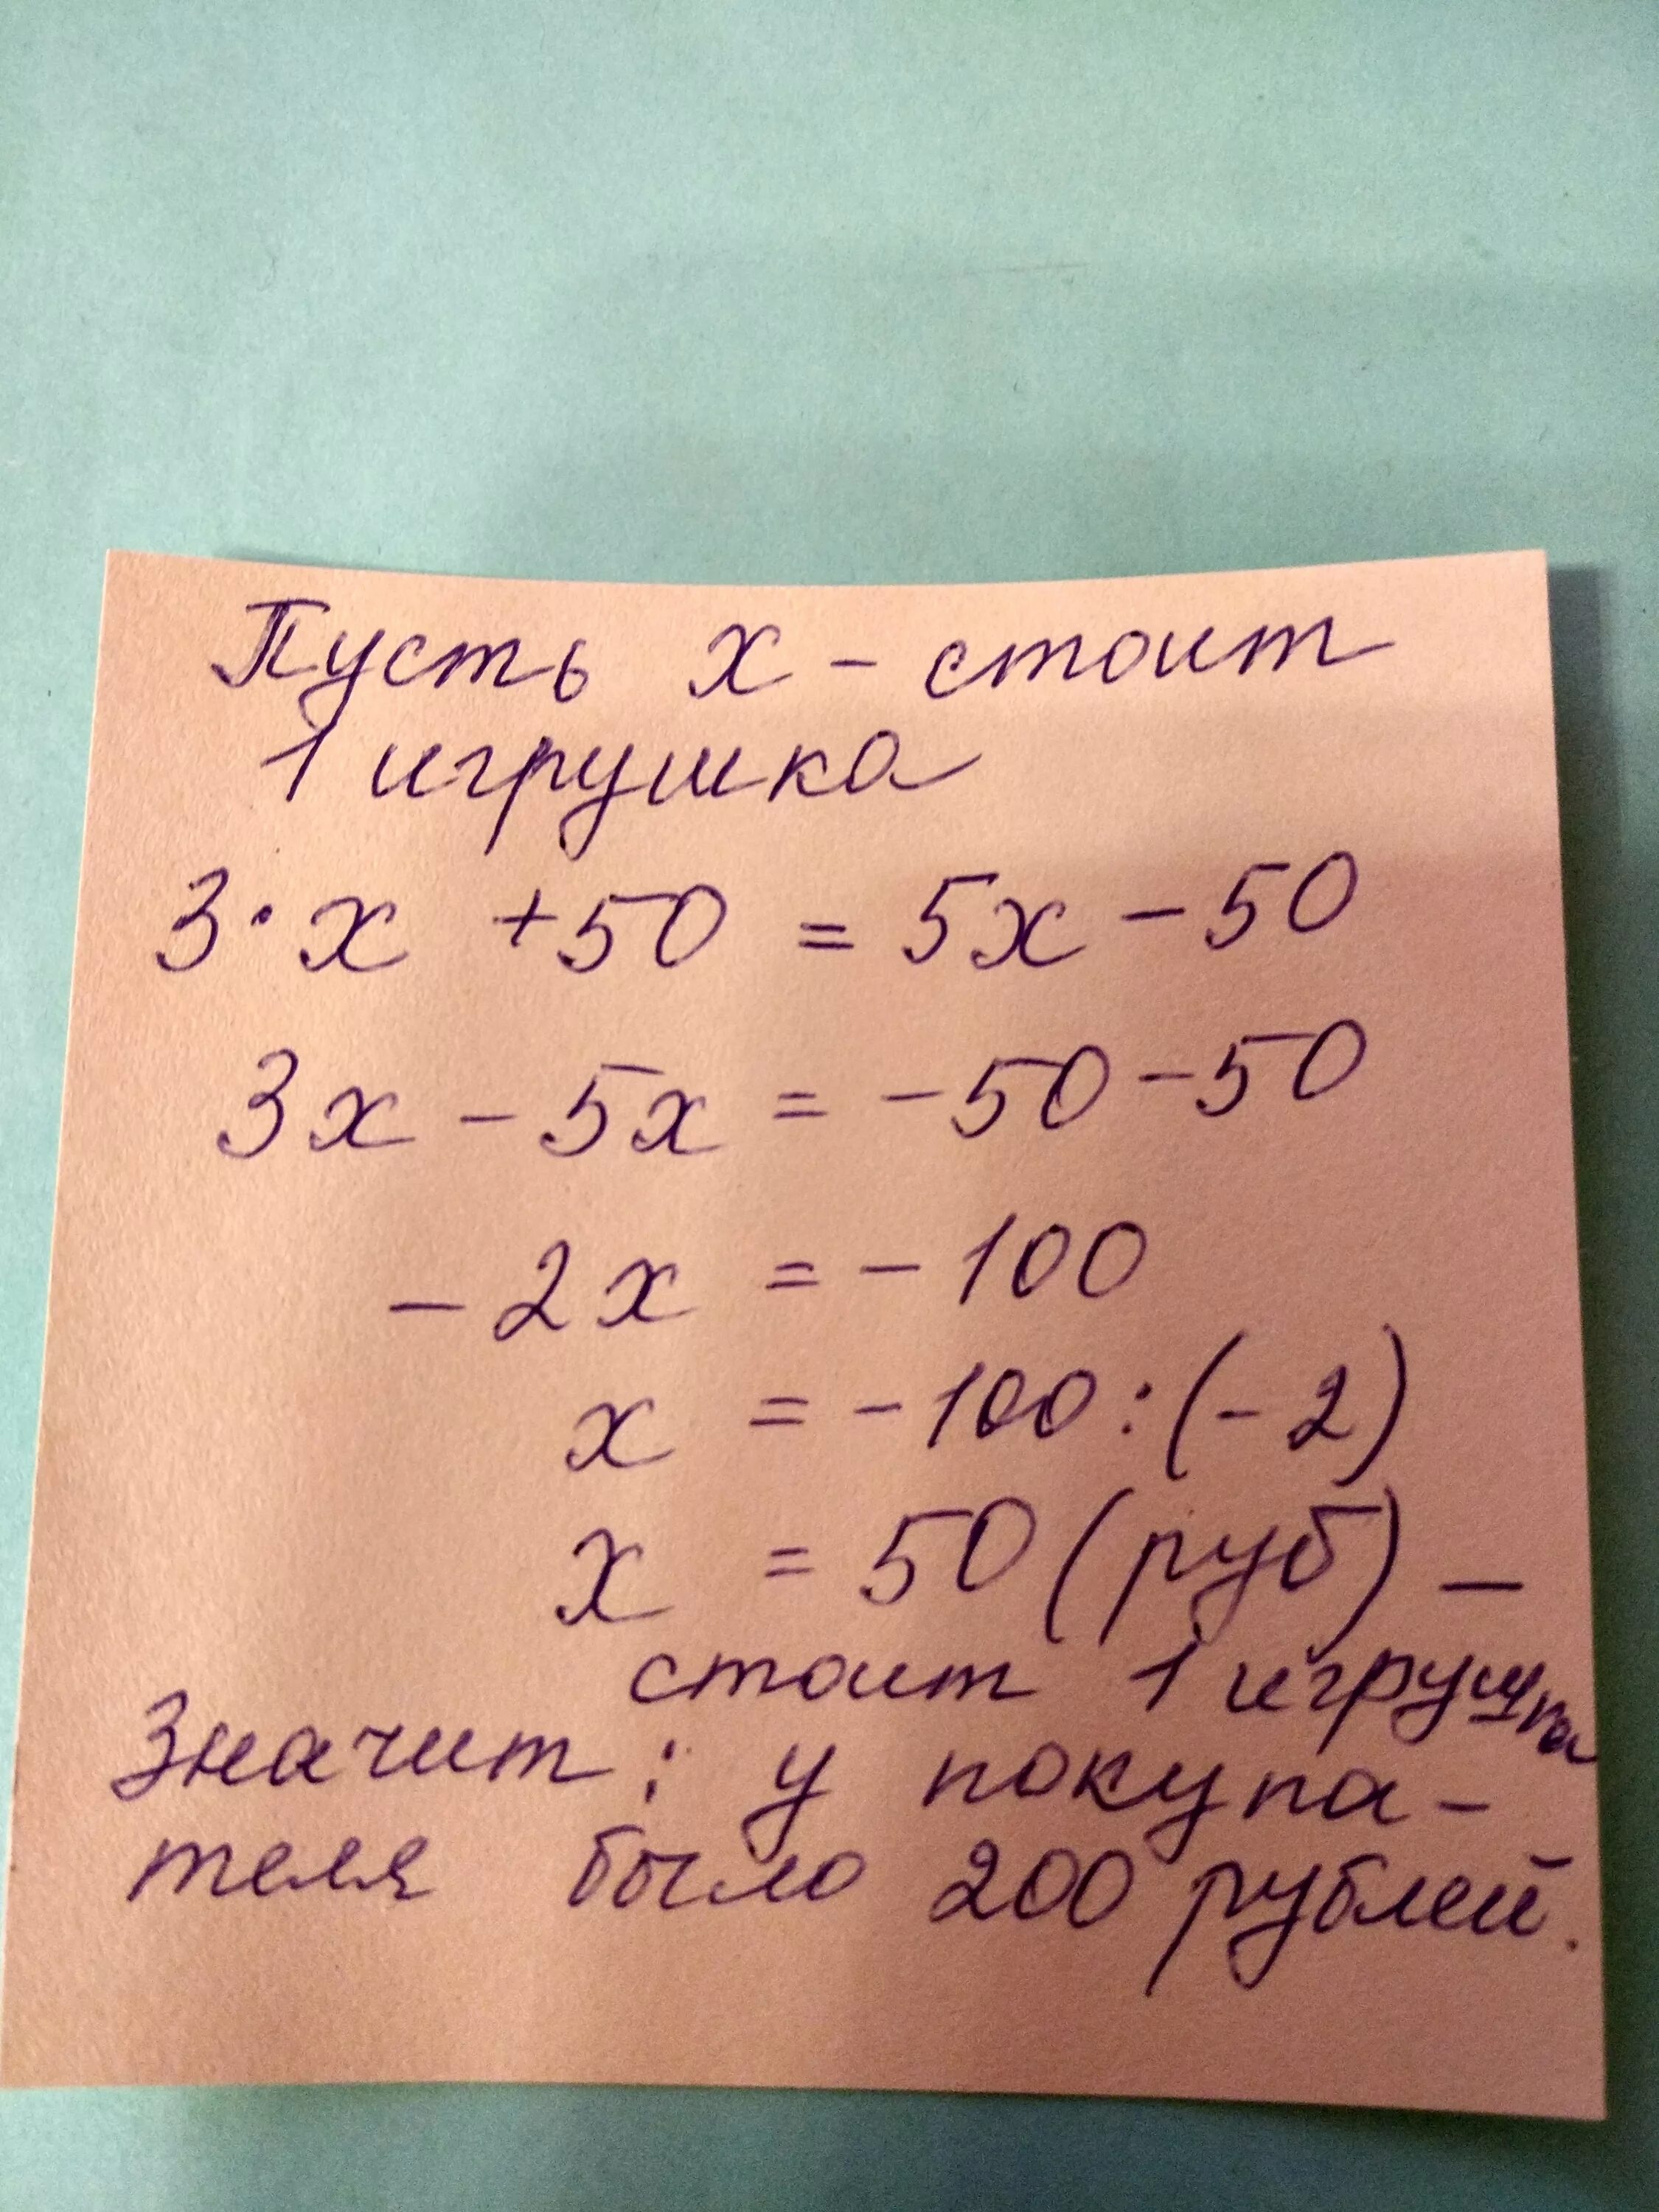 Пусть х - стоит
1 игрушка
3·х +50 = 5х - 50
3х - 5х = -50 - 50
- 2х = - 100
х = - 100 : (- 2)
х = 50 (руб) —
стоит 1 игрушка
Значит: у покупа-
теля было 200 рублей.